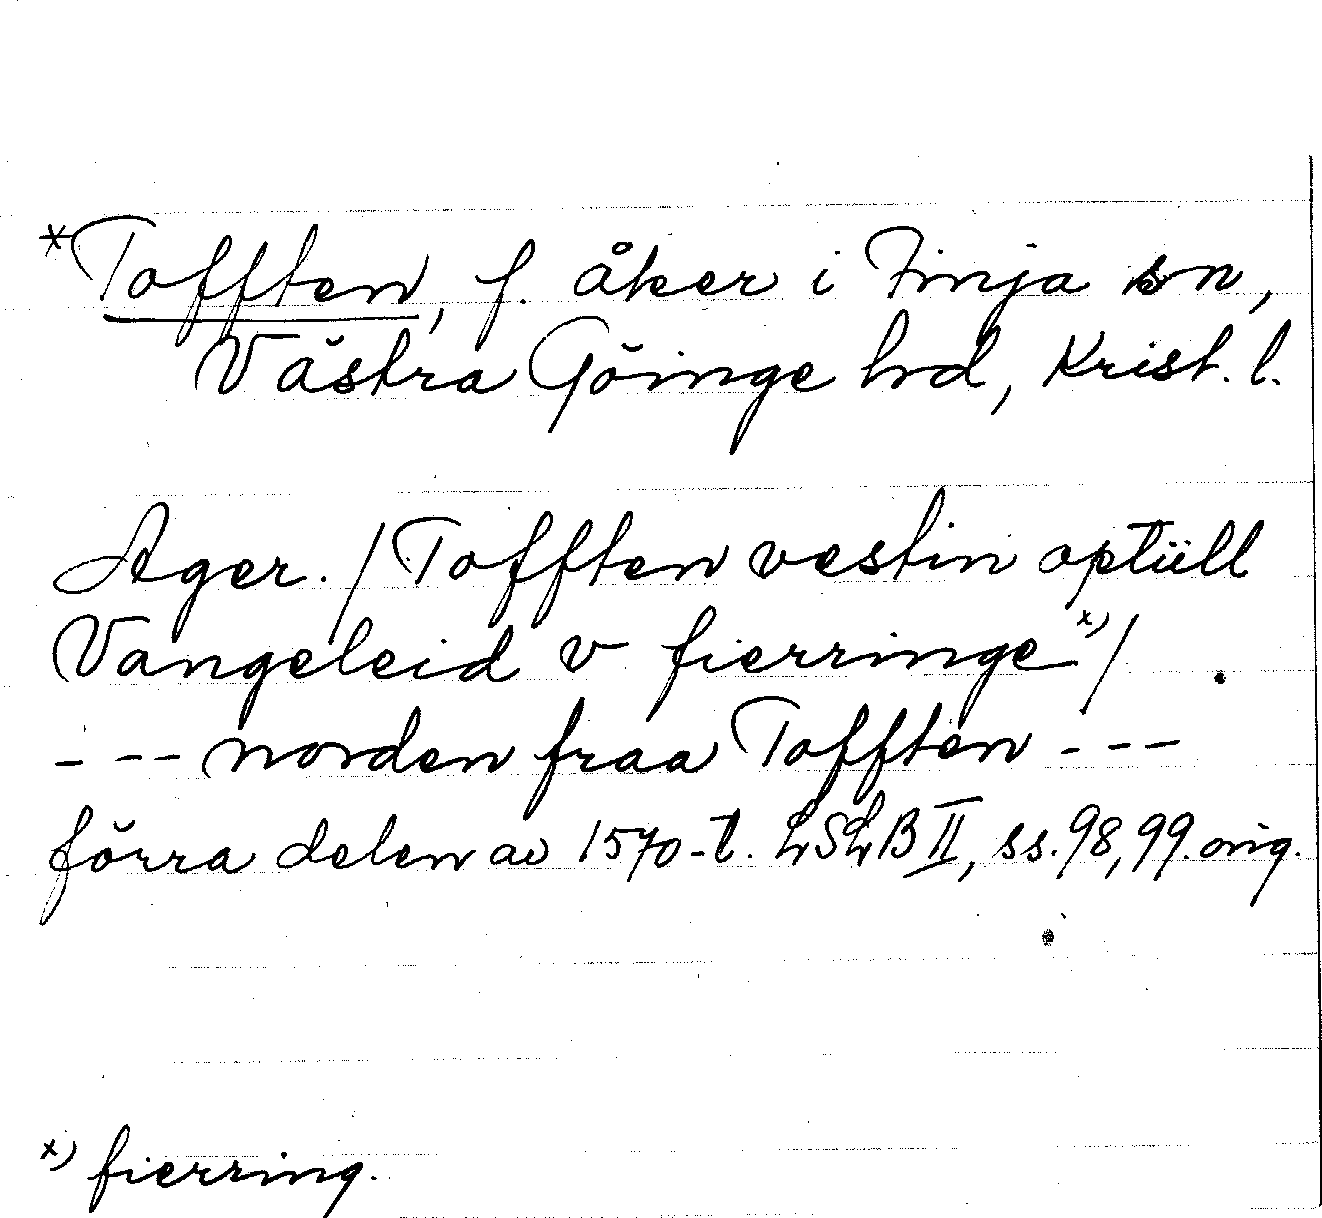 *Tofften, f. åker i Finja sn,
Västra Göinge hd, Krist. l.
Ager. / Tofften vestin optüll
Vangeleid v fierringe x) /
--- norden fraa Tofften ---
förra delen av 1570-t. LSLB II, ss. 98, 99. orig.
x) fierring.